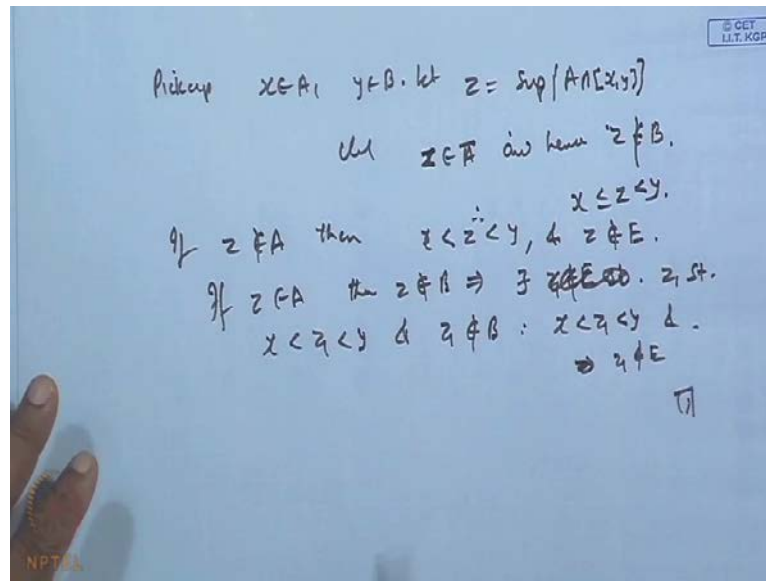 © CET
I.I.T. KGP
Pickup x∈A, y∈B. let z = Sup(A∩[x,y])
z∈A̅ and hence z∉B.
x ≤ z < y.
If z∉A then x < z < y, & z∉E.
If z∈A then z∉B ⇒ ∃ z₁ st.
x < z₁ < y & z₁∉B ∴ x < z₁ < y &
⇒ z₁∉E
NPTEL